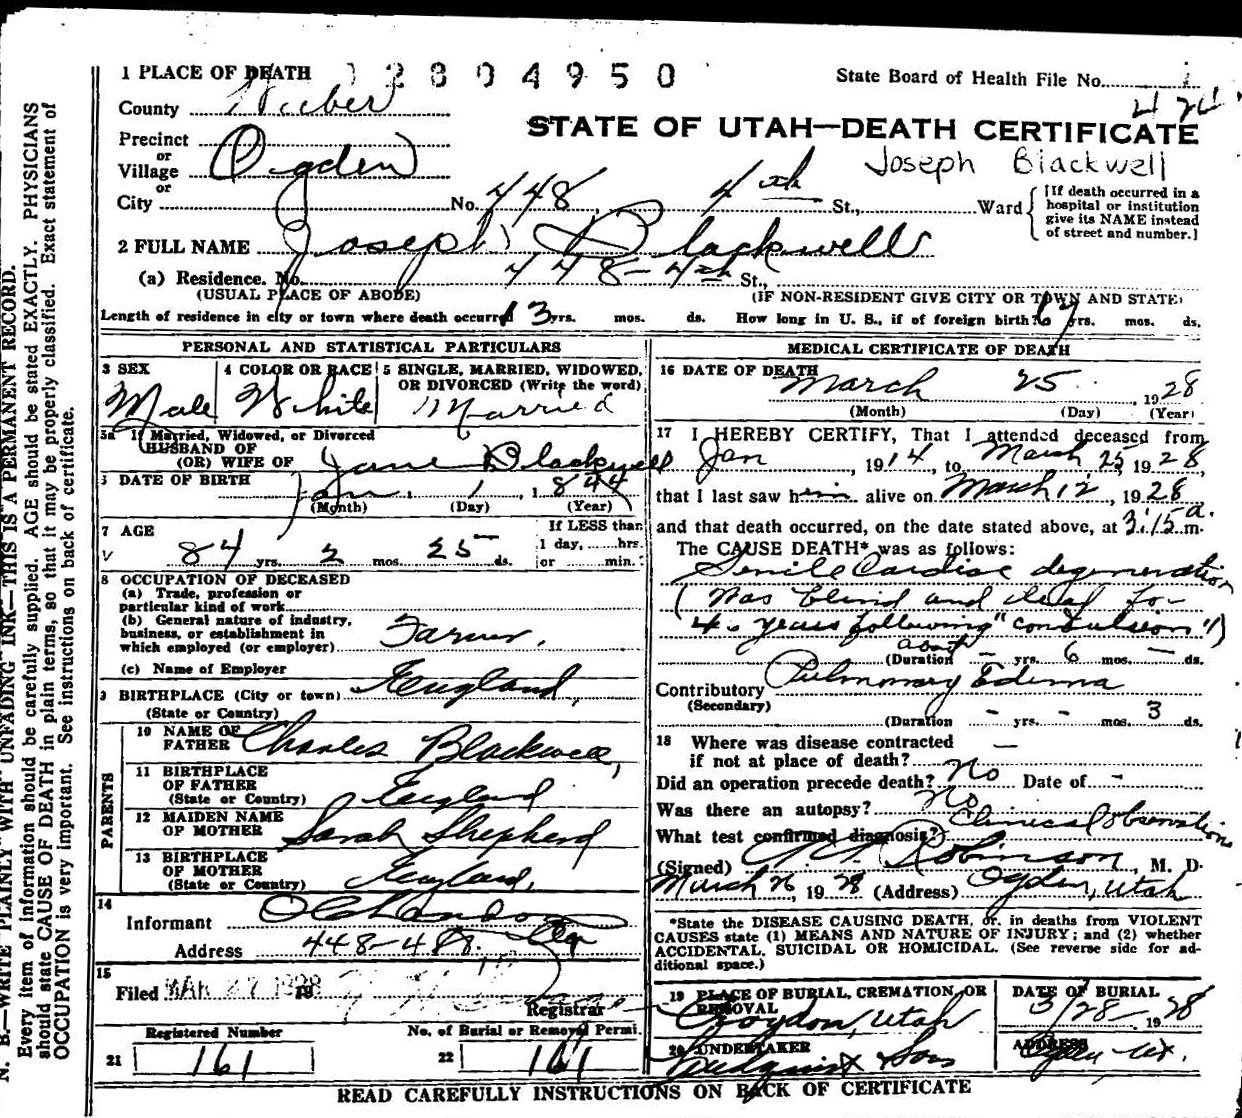 1 PLACE OF DEATH 2804950 State Board of Health File No.
County Weber 424
Precinct STATE OF UTAH—DEATH CERTIFICATE
or Joseph Blackwell
Village Ogden
or
City No. 448 4th St., Ward [If death occurred in a hospital or institution give its NAME instead of street and number.]
2 FULL NAME Joseph Blackwell
(a) Residence. No. 448-4th St.,
(USUAL PLACE OF ABODE) (IF NON-RESIDENT GIVE CITY OR TOWN AND STATE)
Length of residence in city or town where death occurred 13 yrs. mos. ds. How long in U. S., if of foreign birth? yrs. mos. ds.
PERSONAL AND STATISTICAL PARTICULARS
3 SEX 4 COLOR OR RACE 5 SINGLE, MARRIED, WIDOWED,
OR DIVORCED (Write the word)
Male White Married
5a If Married, Widowed, or Divorced
HUSBAND OF
(OR) WIFE OF Jane Blackwell
6 DATE OF BIRTH Jan. 1, 1844
(Month) (Day) (Year)
7 AGE If LESS than
1 day, hrs.
84 yrs. 2 mos. 25 ds. or min.
8 OCCUPATION OF DECEASED
(a) Trade, profession or
particular kind of work
(b) General nature of industry,
business, or establishment in
which employed (or employer) Farmer,
(c) Name of Employer
9 BIRTHPLACE (City or town) England,
(State or Country)
PARENTS
10 NAME OF
FATHER Charles Blackwell,
11 BIRTHPLACE
OF FATHER
(State or Country) England
12 MAIDEN NAME
OF MOTHER Sarah Shepherd
13 BIRTHPLACE
OF MOTHER
(State or Country) England,
14
Informant
Address 448-4th.
15
Filed MAR 27 1928 19
Registrar
Registered Number No. of Burial or Removal Permi.
21 161 22 161
MEDICAL CERTIFICATE OF DEATH
16 DATE OF DEATH
March 25 1928
(Month) (Day) (Year)
17 I HEREBY CERTIFY, That I attended deceased from
Jan, 1914, to March 25 1928,
that I last saw him alive on March 12, 1928
and that death occurred, on the date stated above, at 3:15 a. m.
The CAUSE DEATH* was as follows:
Senile Cardiac degeneration
(Was blind and deaf for
4 years following "convulsion")
about
(Duration - yrs. 6 mos. - ds.
Contributory Pulmonary Edema
(Secondary)
(Duration - yrs. - mos. 3 ds.
18 Where was disease contracted
if not at place of death? —
Did an operation precede death? No Date of -
Was there an autopsy? No
What test confirmed diagnosis? Clinical observations
(Signed) Robinson, M. D.
March 26, 1928 (Address) Ogden, Utah
*State the DISEASE CAUSING DEATH, or, in deaths from VIOLENT
CAUSES state (1) MEANS AND NATURE OF INJURY; and (2) whether
ACCIDENTAL, SUICIDAL OR HOMICIDAL. (See reverse side for ad-
ditional space.)
19 PLACE OF BURIAL, CREMATION, OR DATE OF BURIAL
REMOVAL
Croydon, Utah 3/28, 1928
20 UNDERTAKER ADDRESS
& Sons Ogden Ut.
READ CAREFULLY INSTRUCTIONS ON BACK OF CERTIFICATE
N. B.—WRITE PLAINLY WITH UNFADING INK—THIS IS A PERMANENT RECORD.
Every item of information should be carefully supplied. AGE should be stated EXACTLY. PHYSICIANS
should state CAUSE OF DEATH in plain terms, so that it may be properly classified. Exact statement of
OCCUPATION is very important. See instructions on back of certificate.